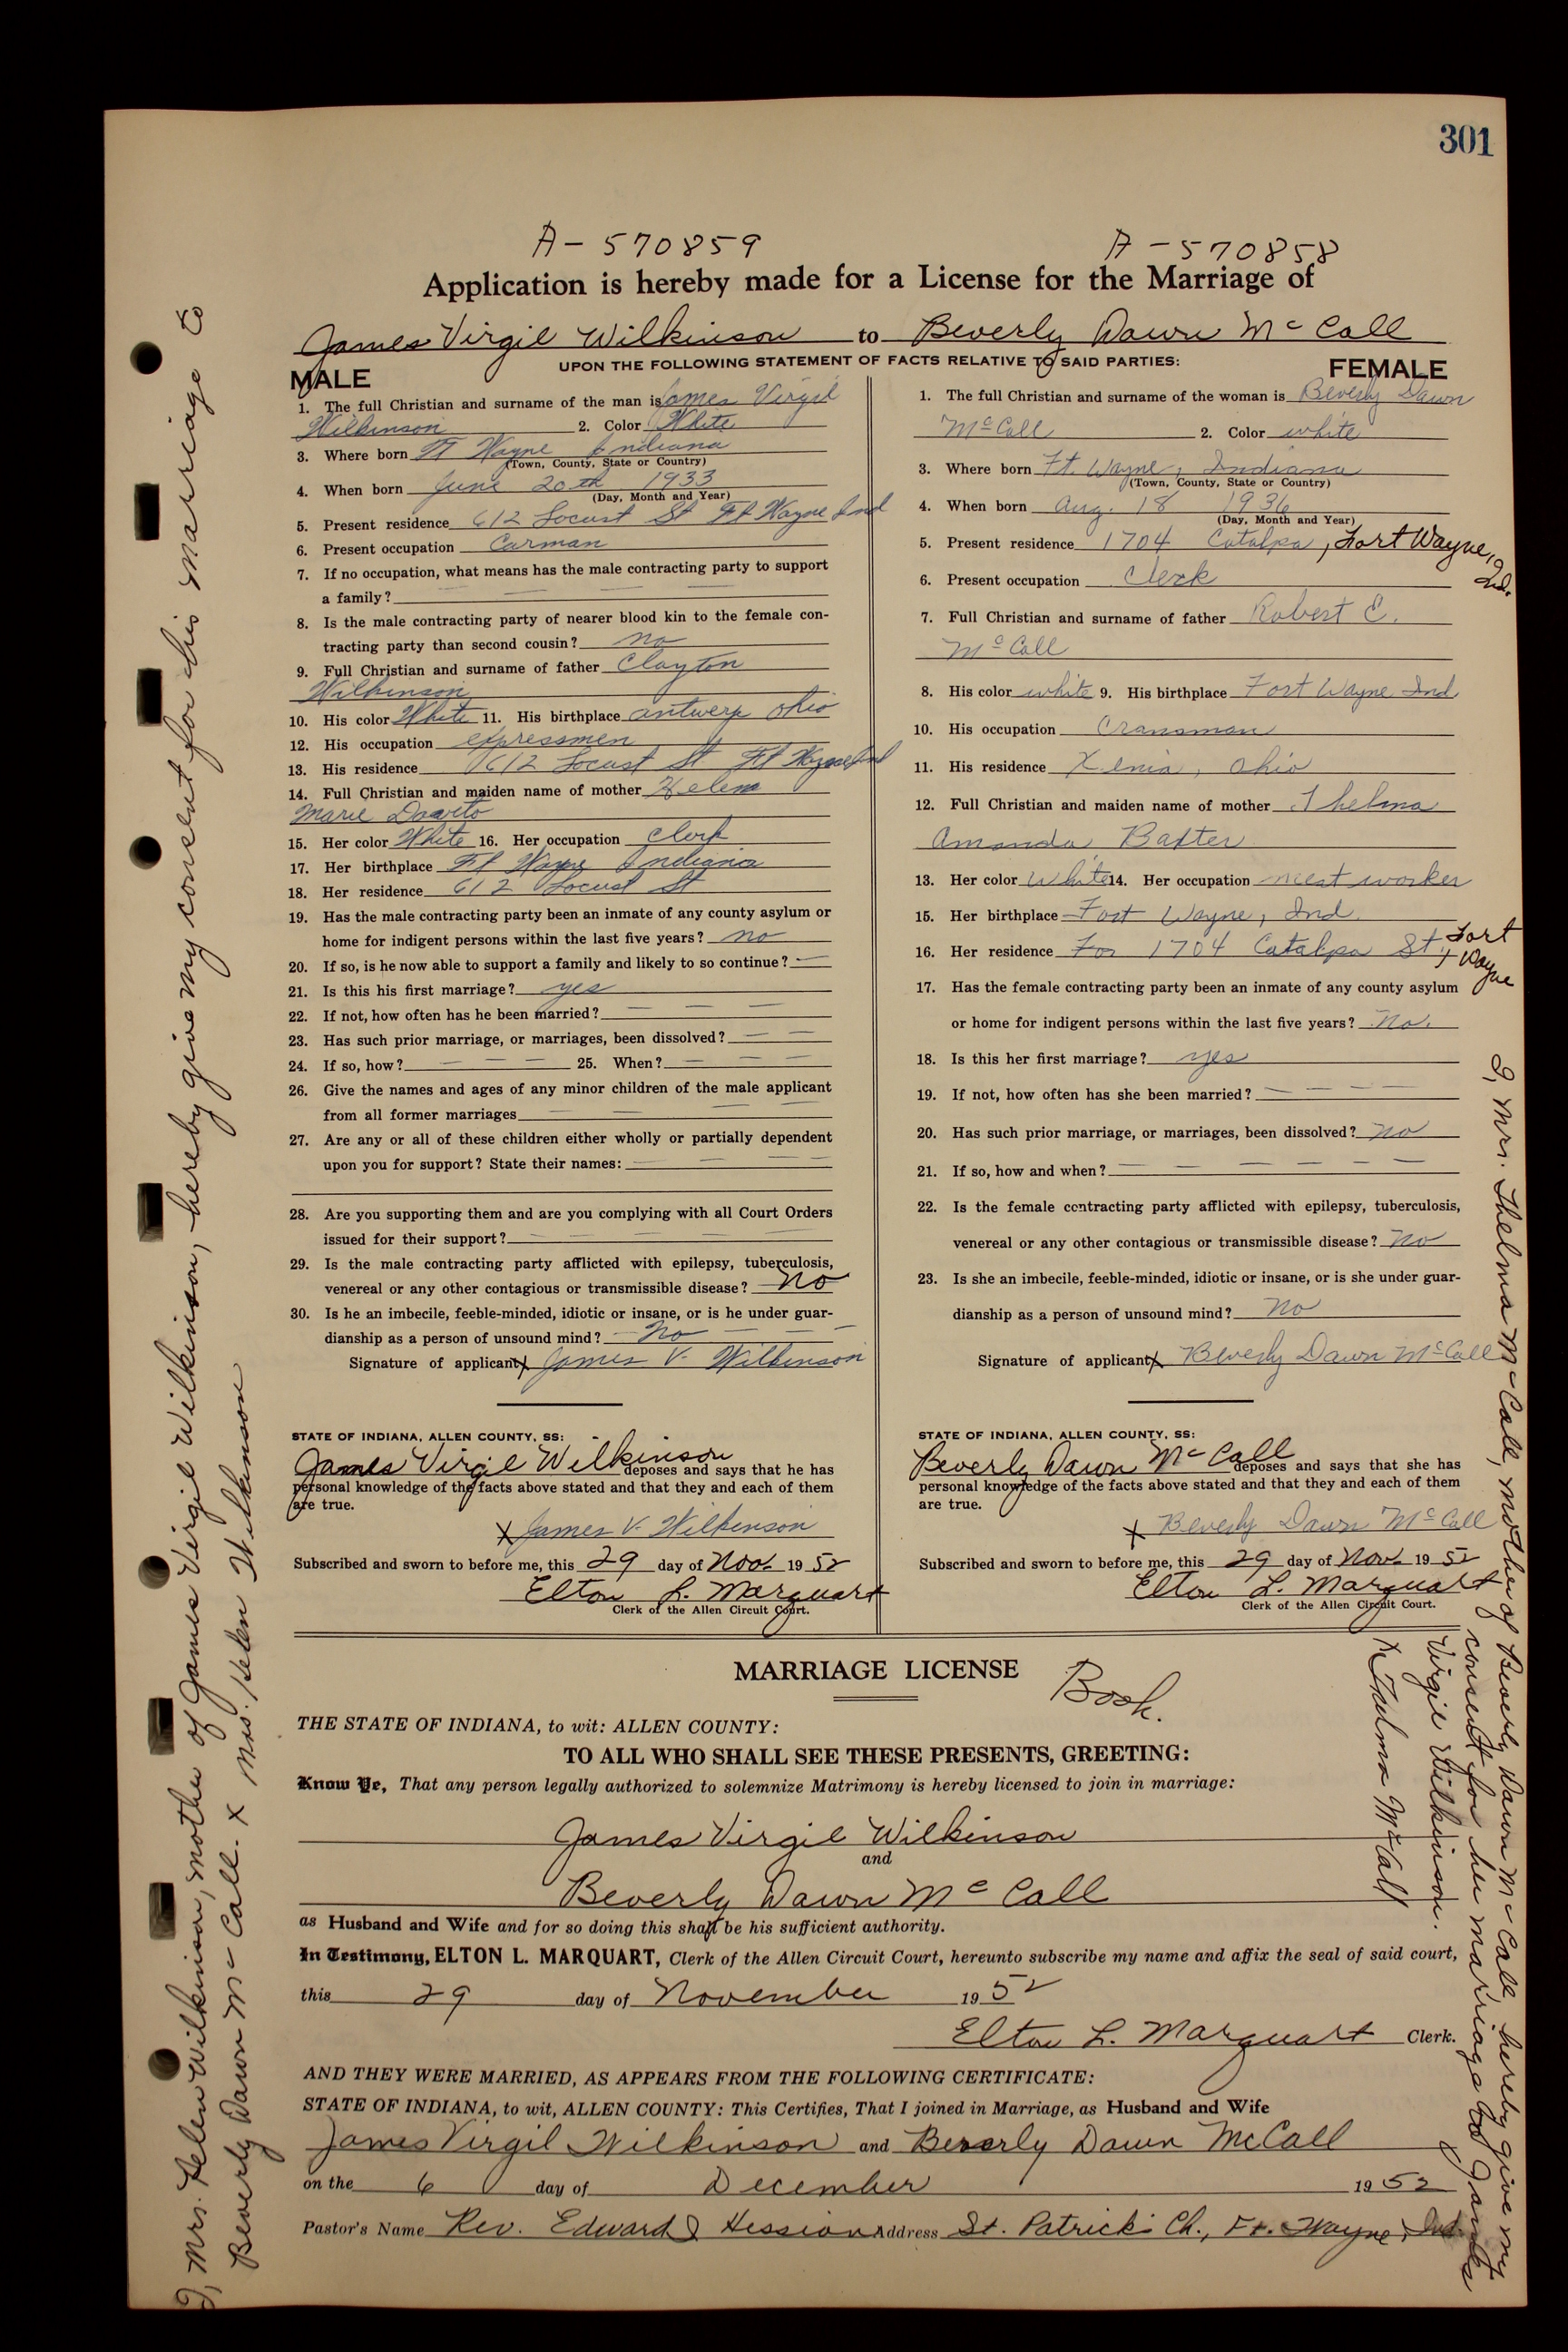 301
A - 570859
A - 570858
Application is hereby made for a License for the Marriage of
James Virgil Wilkinson to Beverly Dawn McCall
UPON THE FOLLOWING STATEMENT OF FACTS RELATIVE TO SAID PARTIES:
MALE
1. The full Christian and surname of the man is James Virgil
Wilkinson 2. Color White
3. Where born Ft Wayne Indiana
(Town, County, State or Country)
4. When born June 20th 1933
(Day, Month and Year)
5. Present residence 612 Locust St Ft Wayne Ind
6. Present occupation Carman
7. If no occupation, what means has the male contracting party to support
a family?
8. Is the male contracting party of nearer blood kin to the female con-
tracting party than second cousin? no
9. Full Christian and surname of father Clayton
Wilkinson
10. His color White 11. His birthplace antwerp ohio
12. His occupation expressmen
13. His residence 612 Locust St Ft Wayne Ind
14. Full Christian and maiden name of mother Helen
Marie
15. Her color White 16. Her occupation clerk
17. Her birthplace Ft Wayne Indiana
18. Her residence 612 Locust St
19. Has the male contracting party been an inmate of any county asylum or
home for indigent persons within the last five years? no
20. If so, is he now able to support a family and likely to so continue? —
21. Is this his first marriage? yes
22. If not, how often has he been married? — — —
23. Has such prior marriage, or marriages, been dissolved? — —
24. If so, how? — — — 25. When? — — —
26. Give the names and ages of any minor children of the male applicant
from all former marriages — — — —
27. Are any or all of these children either wholly or partially dependent
upon you for support? State their names: — — —
28. Are you supporting them and are you complying with all Court Orders
issued for their support? — — — — —
29. Is the male contracting party afflicted with epilepsy, tuberculosis,
venereal or any other contagious or transmissible disease? No
30. Is he an imbecile, feeble-minded, idiotic or insane, or is he under guar-
dianship as a person of unsound mind? — No — — —
Signature of applicant x James V. Wilkinson
STATE OF INDIANA, ALLEN COUNTY, SS:
James Virgil Wilkinson deposes and says that he has
personal knowledge of the facts above stated and that they and each of them
are true.
x James V. Wilkinson
Subscribed and sworn to before me, this 29 day of Nov. 1952
Elton L. Marquart
Clerk of the Allen Circuit Court.
FEMALE
1. The full Christian and surname of the woman is Beverly Dawn
McCall 2. Color white
3. Where born Ft. Wayne, Indiana
(Town, County, State or Country)
4. When born Aug. 18 1936
(Day, Month and Year)
5. Present residence 1704 Catalpa, Fort Wayne, Ind.
6. Present occupation Clerk
7. Full Christian and surname of father Robert E.
McCall
8. His color white 9. His birthplace Fort Wayne Ind
10. His occupation Cransman
11. His residence Xenia, Ohio
12. Full Christian and maiden name of mother Thelma
Amanda Baxter
13. Her color White 14. Her occupation meat worker
15. Her birthplace Fort Wayne, Ind.
16. Her residence For 1704 Catalpa St, Fort Wayne
17. Has the female contracting party been an inmate of any county asylum
or home for indigent persons within the last five years? No.
18. Is this her first marriage? yes
19. If not, how often has she been married? — — — —
20. Has such prior marriage, or marriages, been dissolved? no
21. If so, how and when? — — — — — —
22. Is the female contracting party afflicted with epilepsy, tuberculosis,
venereal or any other contagious or transmissible disease? no
23. Is she an imbecile, feeble-minded, idiotic or insane, or is she under guar-
dianship as a person of unsound mind? no
Signature of applicant x Beverly Dawn McCall
STATE OF INDIANA, ALLEN COUNTY, SS:
Beverly Dawn McCall deposes and says that she has
personal knowledge of the facts above stated and that they and each of them
are true.
x Beverly Dawn McCall
Subscribed and sworn to before me, this 29 day of Nov. 1952
Elton L. Marquart
Clerk of the Allen Circuit Court.
MARRIAGE LICENSE
Book.
THE STATE OF INDIANA, to wit: ALLEN COUNTY:
TO ALL WHO SHALL SEE THESE PRESENTS, GREETING:
Know Ye, That any person legally authorized to solemnize Matrimony is hereby licensed to join in marriage:
James Virgil Wilkinson
and
Beverly Dawn McCall
as Husband and Wife and for so doing this shall be his sufficient authority.
In Testimony, ELTON L. MARQUART, Clerk of the Allen Circuit Court, hereunto subscribe my name and affix the seal of said court,
this 29 day of November 1952
Elton L. Marquart Clerk.
AND THEY WERE MARRIED, AS APPEARS FROM THE FOLLOWING CERTIFICATE:
STATE OF INDIANA, to wit, ALLEN COUNTY: This Certifies, That I joined in Marriage, as Husband and Wife
James Virgil Wilkinson and Beverly Dawn McCall
on the 6 day of December 1952
Pastor's Name Rev. Edward J Hession Address St. Patrick's Ch., Ft. Wayne, Ind.
I, Mrs. Helen Wilkinson, mother of James Virgil Wilkinson, hereby give my consent for his marriage to
Beverly Dawn McCall. x Mrs. Helen Wilkinson
I, Mrs. Thelma McCall, mother of Beverly Dawn McCall, hereby give my
consent for her marriage to James
Virgil Wilkinson.
x Thelma McCall